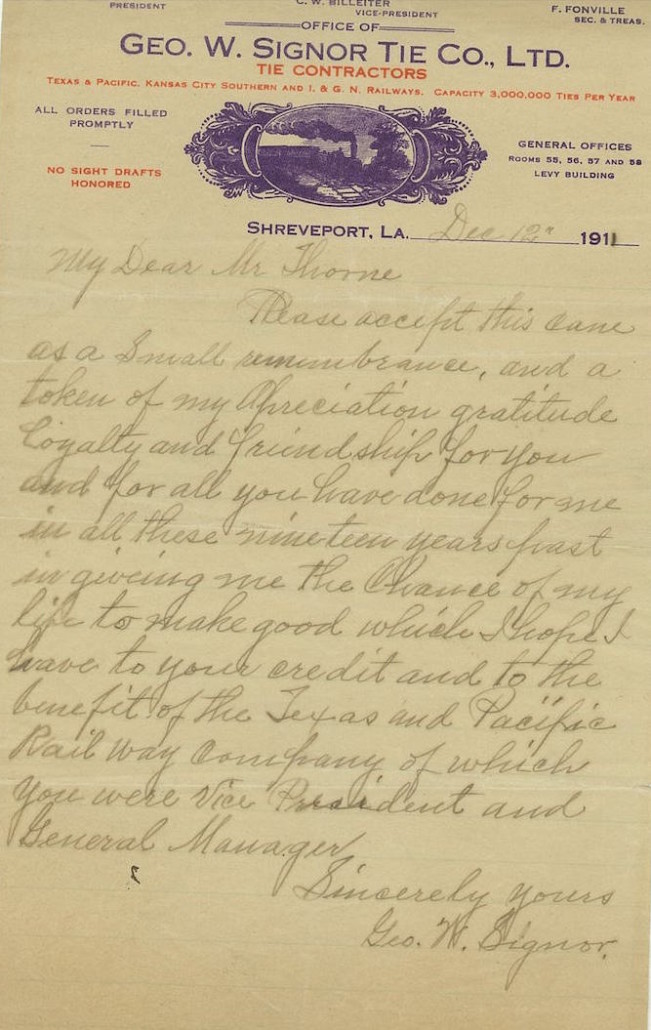 PRESIDENT
C. W. BILLEITER
VICE-PRESIDENT
F. FONVILLE
SEC. & TREAS.
OFFICE OF
GEO. W. SIGNOR TIE CO., LTD.
TIE CONTRACTORS
TEXAS & PACIFIC, KANSAS CITY SOUTHERN AND I. & G. N. RAILWAYS. CAPACITY 3,000,000 TIES PER YEAR
ALL ORDERS FILLED
PROMPTLY
NO SIGHT DRAFTS
HONORED
GENERAL OFFICES
ROOMS 55, 56, 57 AND 58
LEVY BUILDING
SHREVEPORT, LA. Dec 12" 1911
My Dear Mr Thorne
Please accept this cane
as a Small remembrance, and a
token of my Apreciation gratitude
Loyalty and friendship for you
and for all you have done for me
in all these nineteen years past
in giveing me the Chance of my
life to make good which I hope I
have to your credit and to the
benefit of the Texas and Pacific
Rail way Company of which
you were Vice President and
General Manager
Sincerely yours
Geo. W. Signor.